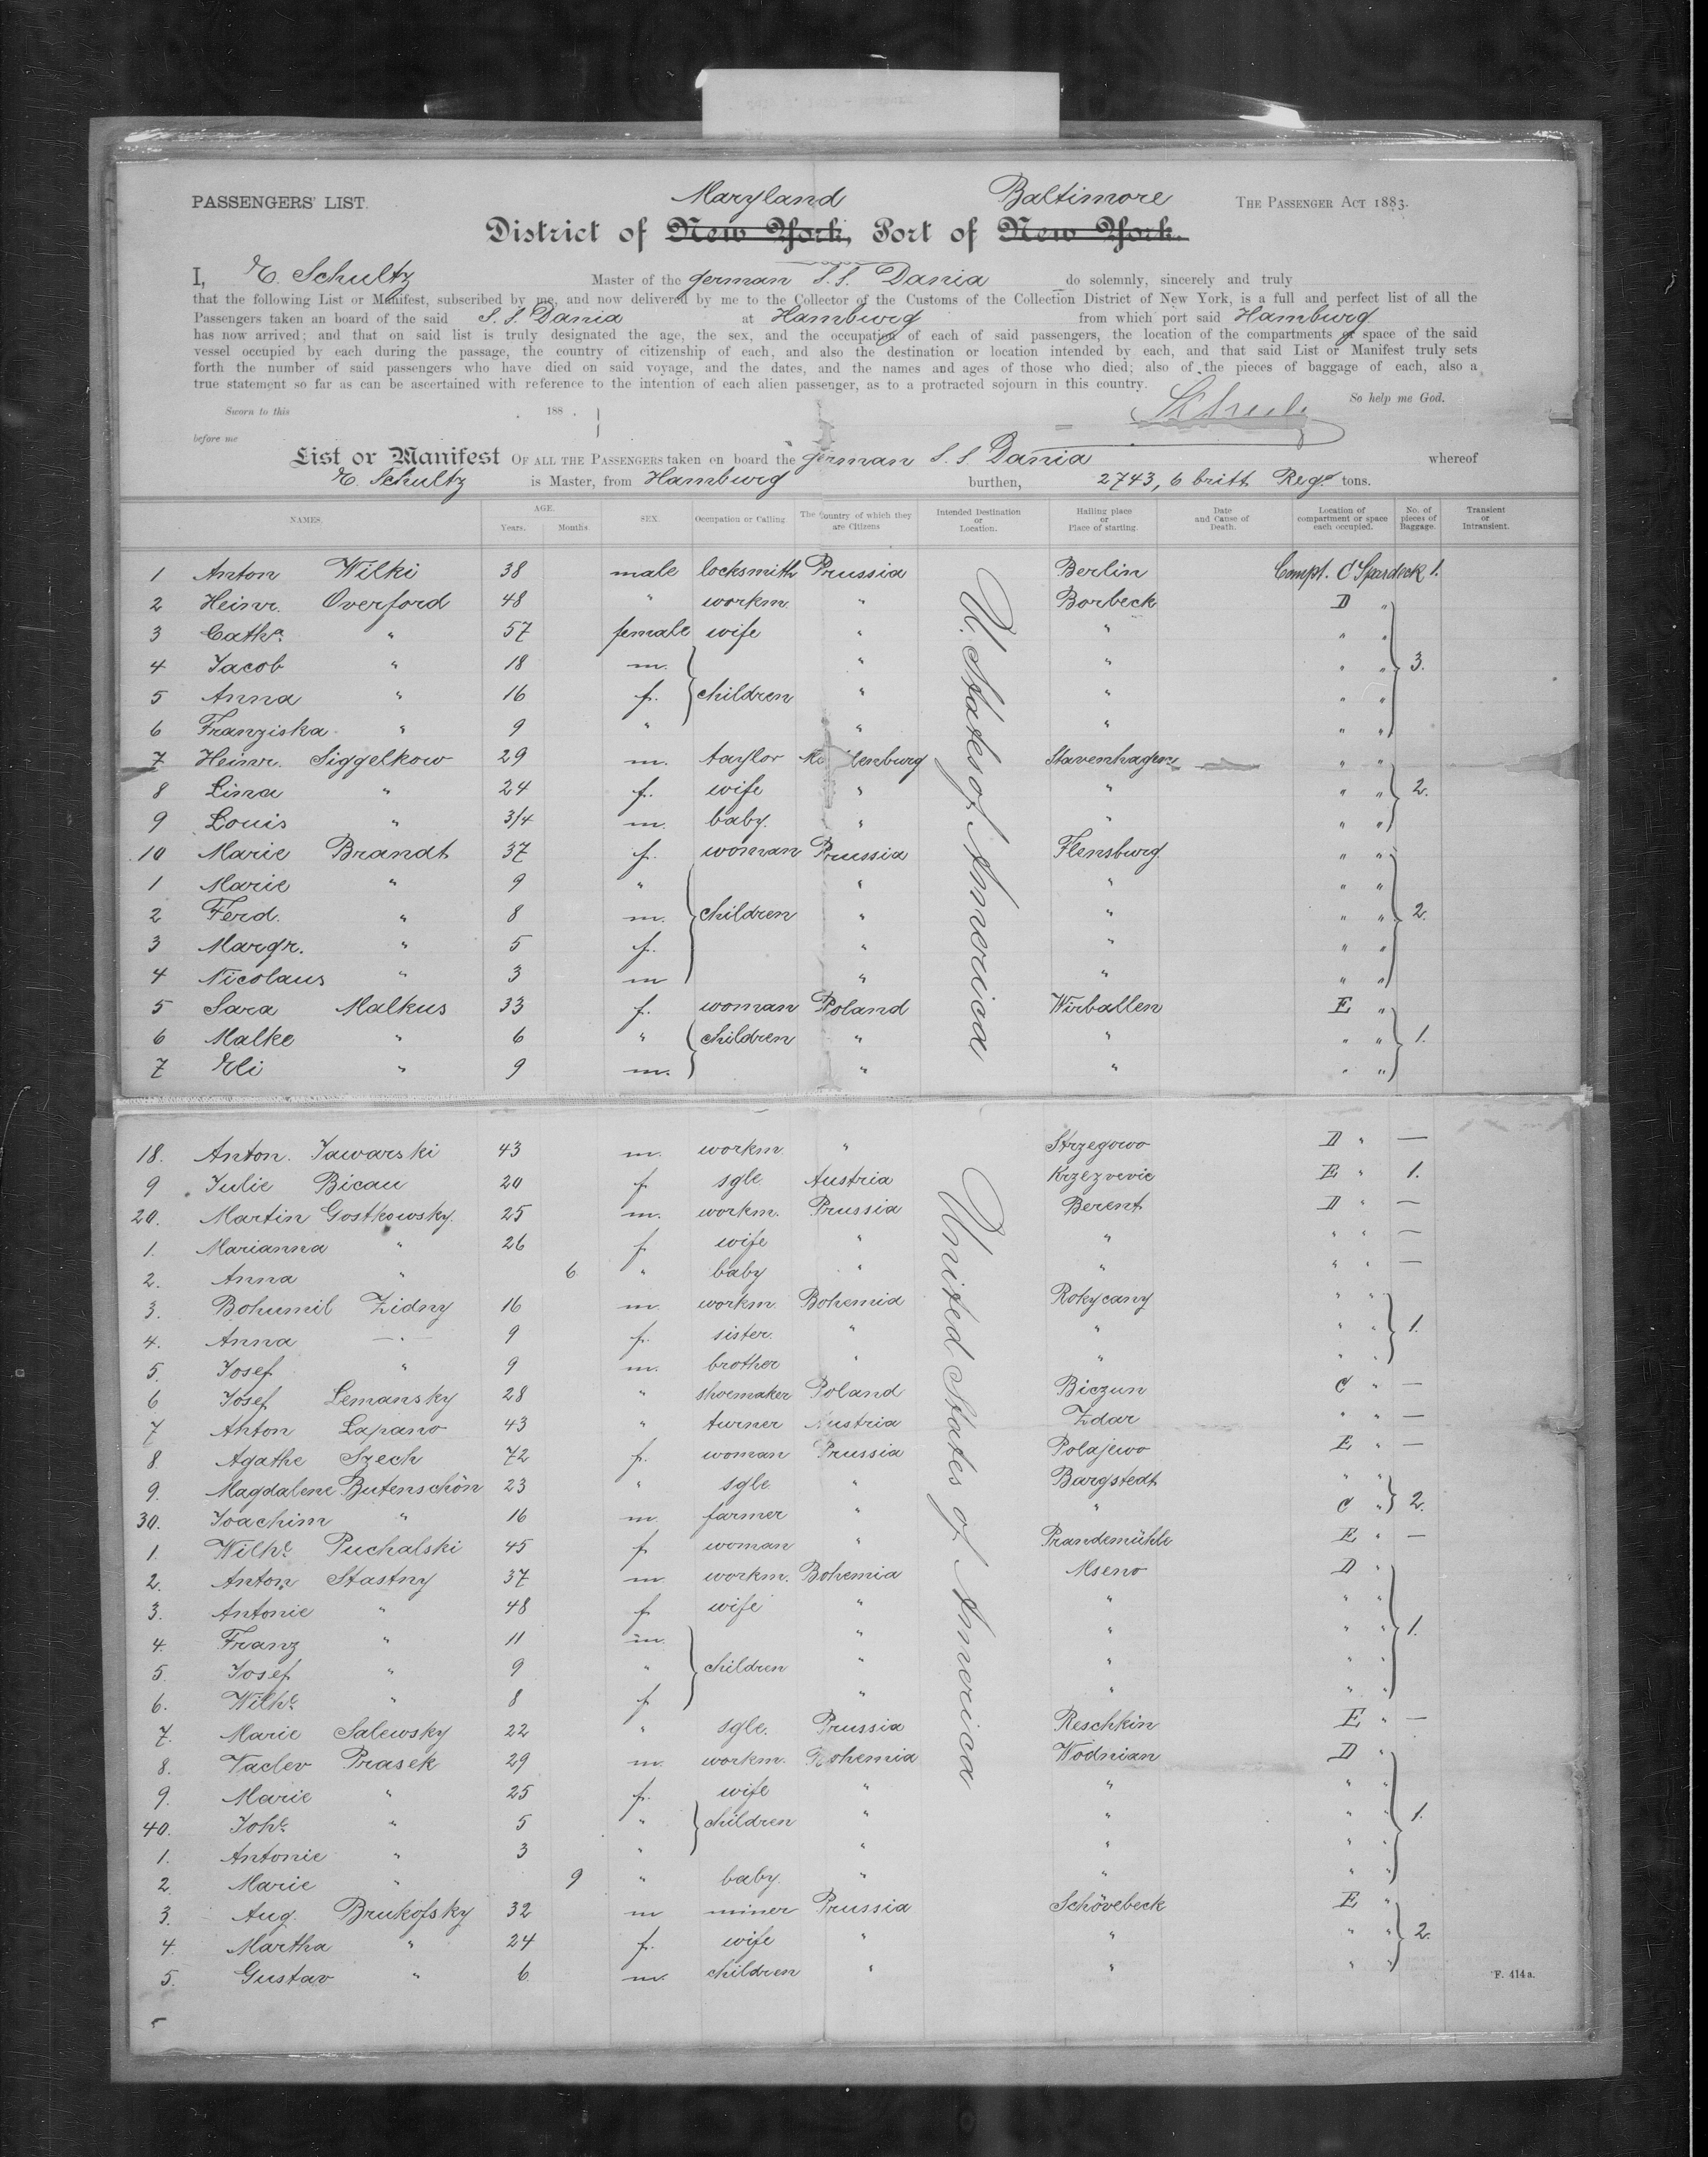 Maryland Baltimore
PASSENGERS' LIST. THE PASSENGER ACT 1883.
District of New York, Port of New York.
I, E. Schultz Master of the german S. S. Dania do solemnly, sincerely and truly
that the following List or Manifest, subscribed by me, and now delivered by me to the Collector of the Customs of the Collection District of New York, is a full and perfect list of all the
Passengers taken an board of the said S. S. Dania at Hamburg from which port said Hamburg
has now arrived; and that on said list is truly designated the age, the sex, and the occupation of each of said passengers, the location of the compartments or space of the said
vessel occupied by each during the passage, the country of citizenship of each, and also the destination or location intended by each, and that said List or Manifest truly sets
forth the number of said passengers who have died on said voyage, and the dates, and the names and ages of those who died; also of the pieces of baggage of each, also a
true statement so far as can be ascertained with reference to the intention of each alien passenger, as to a protracted sojourn in this country.
So help me God.
Sworn to this 188 .
before me
List or Manifest OF ALL THE PASSENGERS taken on board the german S. S. Dania whereof
E. Schultz is Master, from Hamburg burthen, 2743,6 britt Regr tons.
NAMES. AGE. Years. Months. SEX. Occupation or Calling. The Country of which they are Citizens Intended Destination or Location. Hailing place or Place of starting. Date and Cause of Death. Location of compartment or space each occupied. No. of pieces of Baggage. Transient or Intransient.
U. States of America
1 Anton Wilki 38 male locksmith Prussia Berlin Compt. C Spardeck 1.
2 Heinr. Overford 48 " workm. " Borbeck D "
3 Catha " 57 female wife " " " "
4 Jacob " 18 m. " " " " 3.
5 Anna " 16 f. children " " " "
6 Franziska " 9 " " " " "
7 Heinr. Siggelkow 29 m. taylor Mecklenburg Stavenhagen " "
8 Lina " 24 f. wife " " " " 2.
9 Louis " 3/4 m. baby. " " " "
10 Marie Brandt 37 f. woman Prussia Flensburg " "
1 Marie " 9 " " " " "
2 Ferd. " 8 m. children " " " " 2.
3 Margr. " 5 f. " " " "
4 Nicolaus " 3 m " " " "
5 Sara Malkus 33 f. woman Poland Wirballen E "
6 Malke " 6 " children " " " " 1.
7 Eli " 9 m. " " " "
United States of America
18. Anton. Jawarski 43 m. workm. " Strzegowo D " —
9 Julie Bicau 20 f sgle Austria Krzezvevic E " 1.
20. Martin Gostkowsky. 25 m. workm. Prussia Berent D " —
1. Marianna " 26 f wife " " " " —
2. Anna " 6 " baby " " " " —
3. Bohumil Zidny 16 m. workm. Bohemia Rokycany " "
4. Anna — " — 9 f. sister. " " " " 1.
5. Josef " 9 m. brother " " " "
6 Josef Lemansky 28 " shoemaker Poland Biezun C " —
7 Anton Lapano 43 " turner Austria Zdar " " —
8. Agathe Szech 72 f. woman Prussia Polajewo E " —
9. Magdalene Butenschön 23 " sgle " Bargstedt " "
30. Joachim " 16 m. farmer " " C " 2.
1. Wilhe Puchalski 45 f woman " Prandemühle E " —
2. Anton Stastny 37 m workm. Bohemia Mseno D "
3. Antonie " 48 f wife " " " "
4. Franz " 11 m. " " " " 1.
5. Josef " 9 " children " " " "
6. Wilhe " 8 f " " " "
7. Marie Salewsky 22 " sgle. Prussia Reschkin E " —
8. Vaclev Prasek 29 m. workm. Bohemia Wodnian D "
9. Marie " 25 f. wife " " " "
40. Johe " 5 " children " " " " 1.
1. Antonie " 3 " " " " "
2. Marie " 9 " baby. " " " "
3. Aug. Brukofsky 32 m miner Prussia Schövebeck E "
4. Martha " 24 f. wife " " " " 2.
5. Gustav " 6 m. children " " " "
F. 414a.